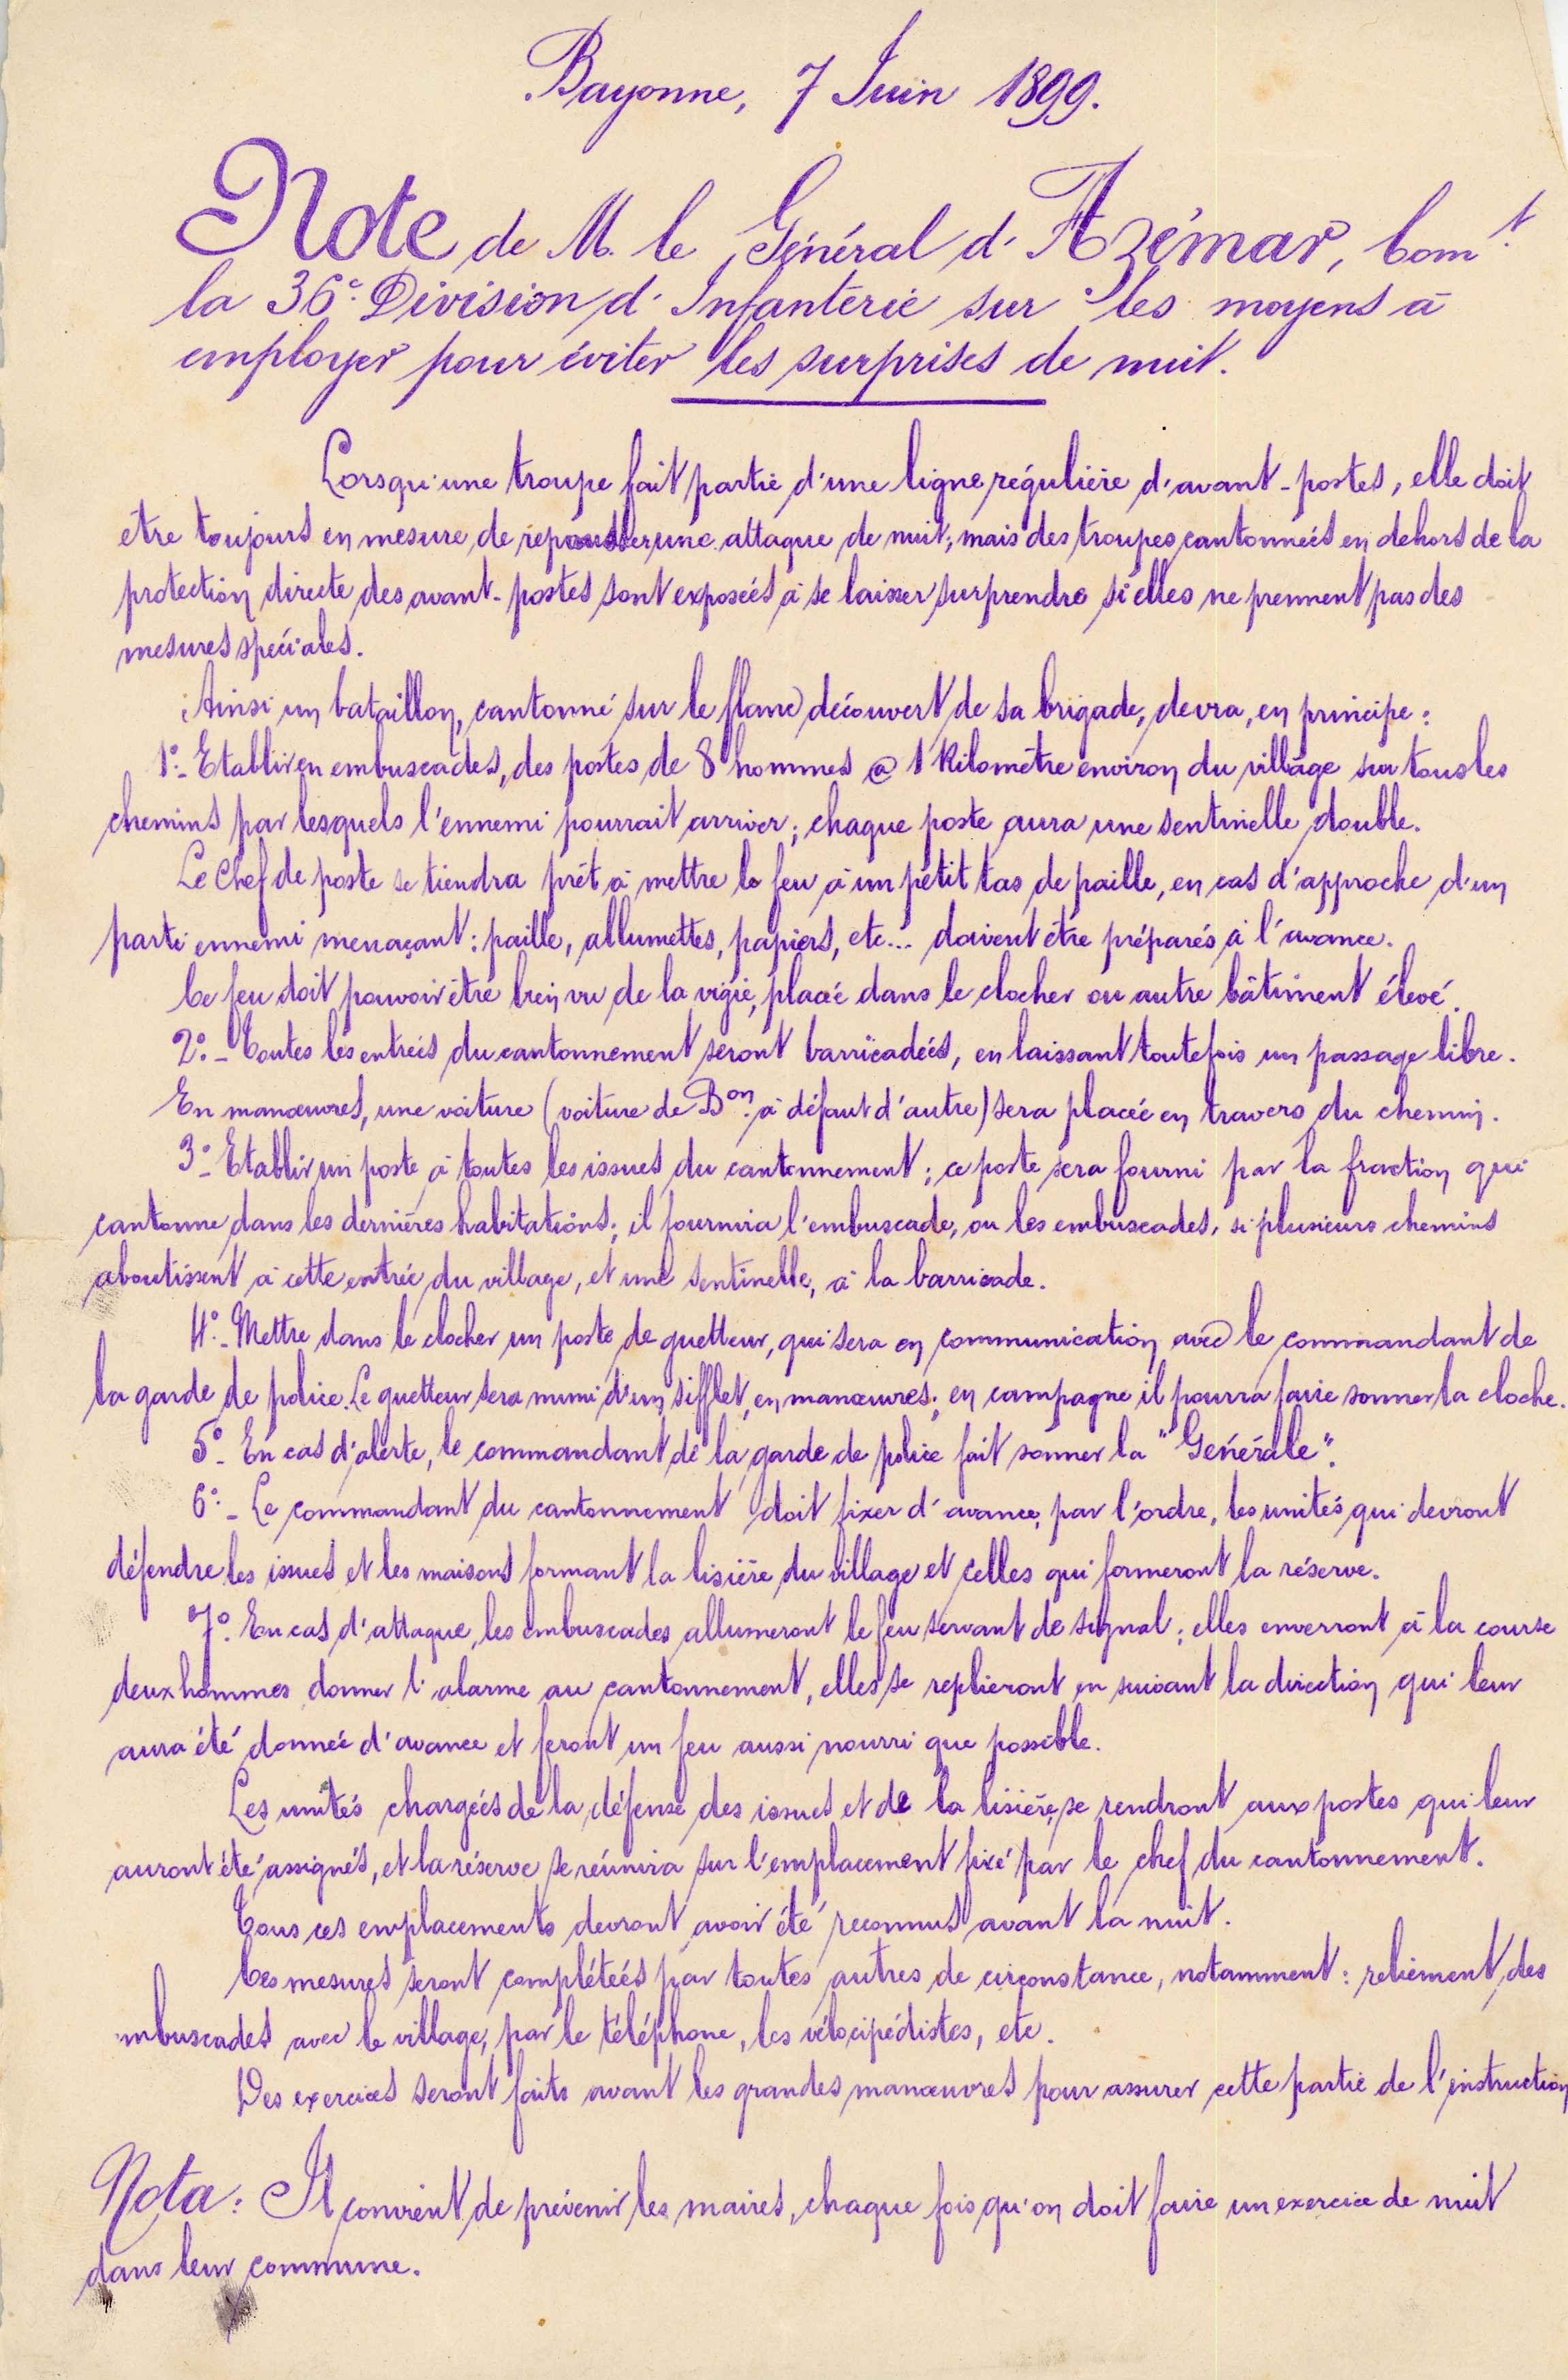 Bayonne, 7 Juin 1899.
Note de M. le Général d'Azémar, Com.t
la 36e. Division d'Infanterie sur les moyens à
employer pour éviter les surprises de nuit.
Lorsqu'une troupe fait partie d'une ligne régulière d'avant-postes, elle doit
être toujours en mesure de repousser une attaque de nuit; mais des troupes cantonnées en dehors de la
protection directe des avant-postes sont exposées à se laisser surprendre si elles ne prennent pas des
mesures spéciales.
Ainsi un bataillon, cantonné sur le flanc découvert de sa brigade, devra, en principe:
1°- Etablir en embuscades, des postes de 8 hommes @ 1 Kilomètre environ du village sur tous les
chemins par lesquels l'ennemi pourrait arriver; chaque poste aura une sentinelle double.
Le Chef de poste se tiendra prêt à mettre le feu à un petit tas de paille, en cas d'approche d'un
parti ennemi menaçant: paille, allumettes, papiers, etc... doivent être préparés à l'avance.
Ce feu doit pouvoir être bien vu de la vigie, placée dans le clocher ou autre bâtiment élevé.
2°.- Toutes les entrées du cantonnement seront barricadées, en laissant toutefois un passage libre.
En manœuvres, une voiture (voiture de Bon. à défaut d'autre) sera placée en travers du chemin.
3°- Etablir un poste à toutes les issues du cantonnement; ce poste sera fourni par la fraction qui
cantonne dans les dernières habitations; il fournira l'embuscade, ou les embuscades, si plusieurs chemins
aboutissent à cette entrée du village, et une sentinelle, à la barricade.
4°.- Mettre dans le clocher un poste de guetteur, qui sera en communication avec le commandant de
la garde de police. Le guetteur sera muni d'un sifflet, en manœuvres; en campagne il pourra faire sonner la cloche.
5°- En cas d'alerte, le commandant de la garde de police fait sonner la "Générale".
6°.- Le commandant du cantonnement doit fixer d'avance, par l'ordre, les unités qui devront
défendre les issues et les maisons formant la lisière du village et celles qui formeront la réserve.
7°. En cas d'attaque, les embuscades allumeront le feu servant de signal; elles enverront à la course
deux hommes donner l'alarme au cantonnement, elles se replieront en suivant la direction qui leur
aura été donnée d'avance et feront un feu aussi nourri que possible.
Les unités chargées de la défense des issues et de la lisière, se rendront aux postes qui leur
auront été assignés, et la réserve se réunira sur l'emplacement fixé par le chef du cantonnement.
Tous ces emplacements devront avoir été reconnus avant la nuit.
Ces mesures seront complétées par toutes autres de circonstance, notamment: reliement des
mbuscades avec le village, par le téléphone, les vélocipédistes, etc.
Des exercices seront faits avant les grandes manœuvres pour assurer cette partie de l'instruction
Nota: Il convient de prévenir les maires, chaque fois qu'on doit faire un exercice de nuit
dans leur commune.